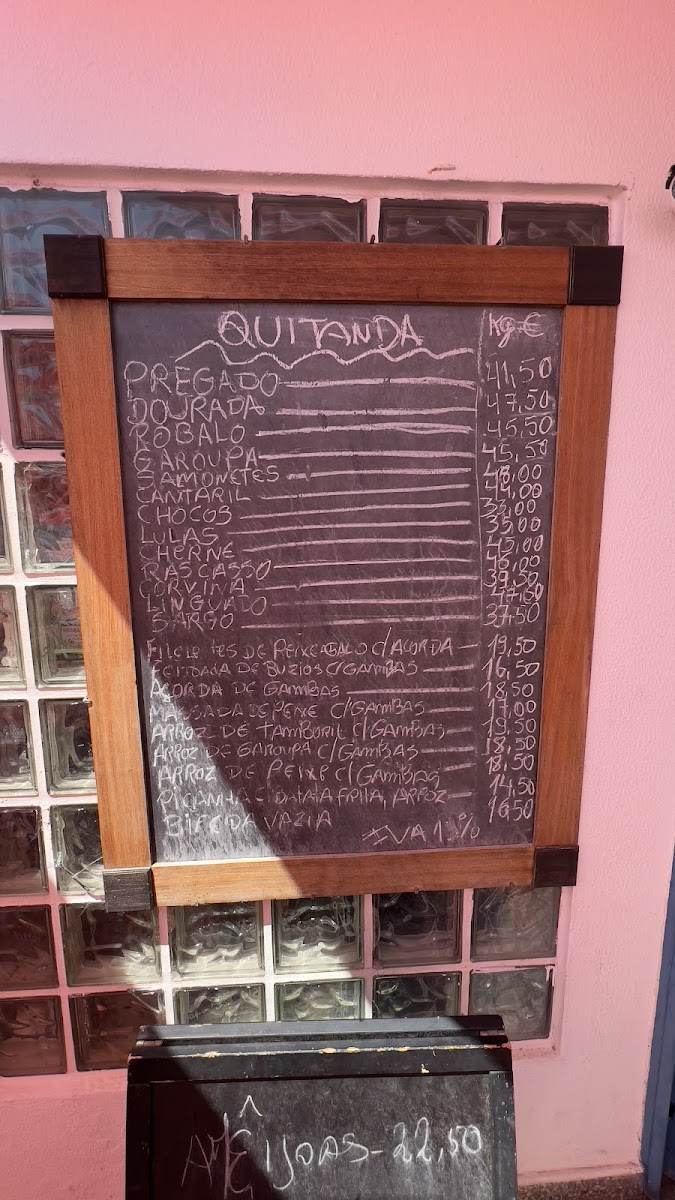 QUITANDA Kg €
PREGADO 41,50
DOURADA 47,50
ROBALO 45,50
GAROUPA 45,50
SAMONETES 48,00
CANTARIL 44,00
CHOCOS 33,00
LULAS 35,00
CHERNE 45,00
RASCASSO 46,00
CORVINA 39,50
LINGUADO 47,50
SARGO 37,50
DE PEIXE C/AÇORDA 19,50
DE BUZIOS C/GAMBAS 16,50
AÇORDA DE GAMBAS 18,50
MASSADA DE PEIXE C/GAMBAS 17,00
ARROZ DE TAMBORIL C/GAMBAS 19,50
ARROZ DE GAROUPA C/GAMBAS 18,50
ARROZ DE PEIXE C/GAMBAS 18,50
PICANHA C/BATATA FRITA, ARROZ 14,50
BIFE DA VAZIA 16,50
IVA
AMÊIJOAS - 22,50